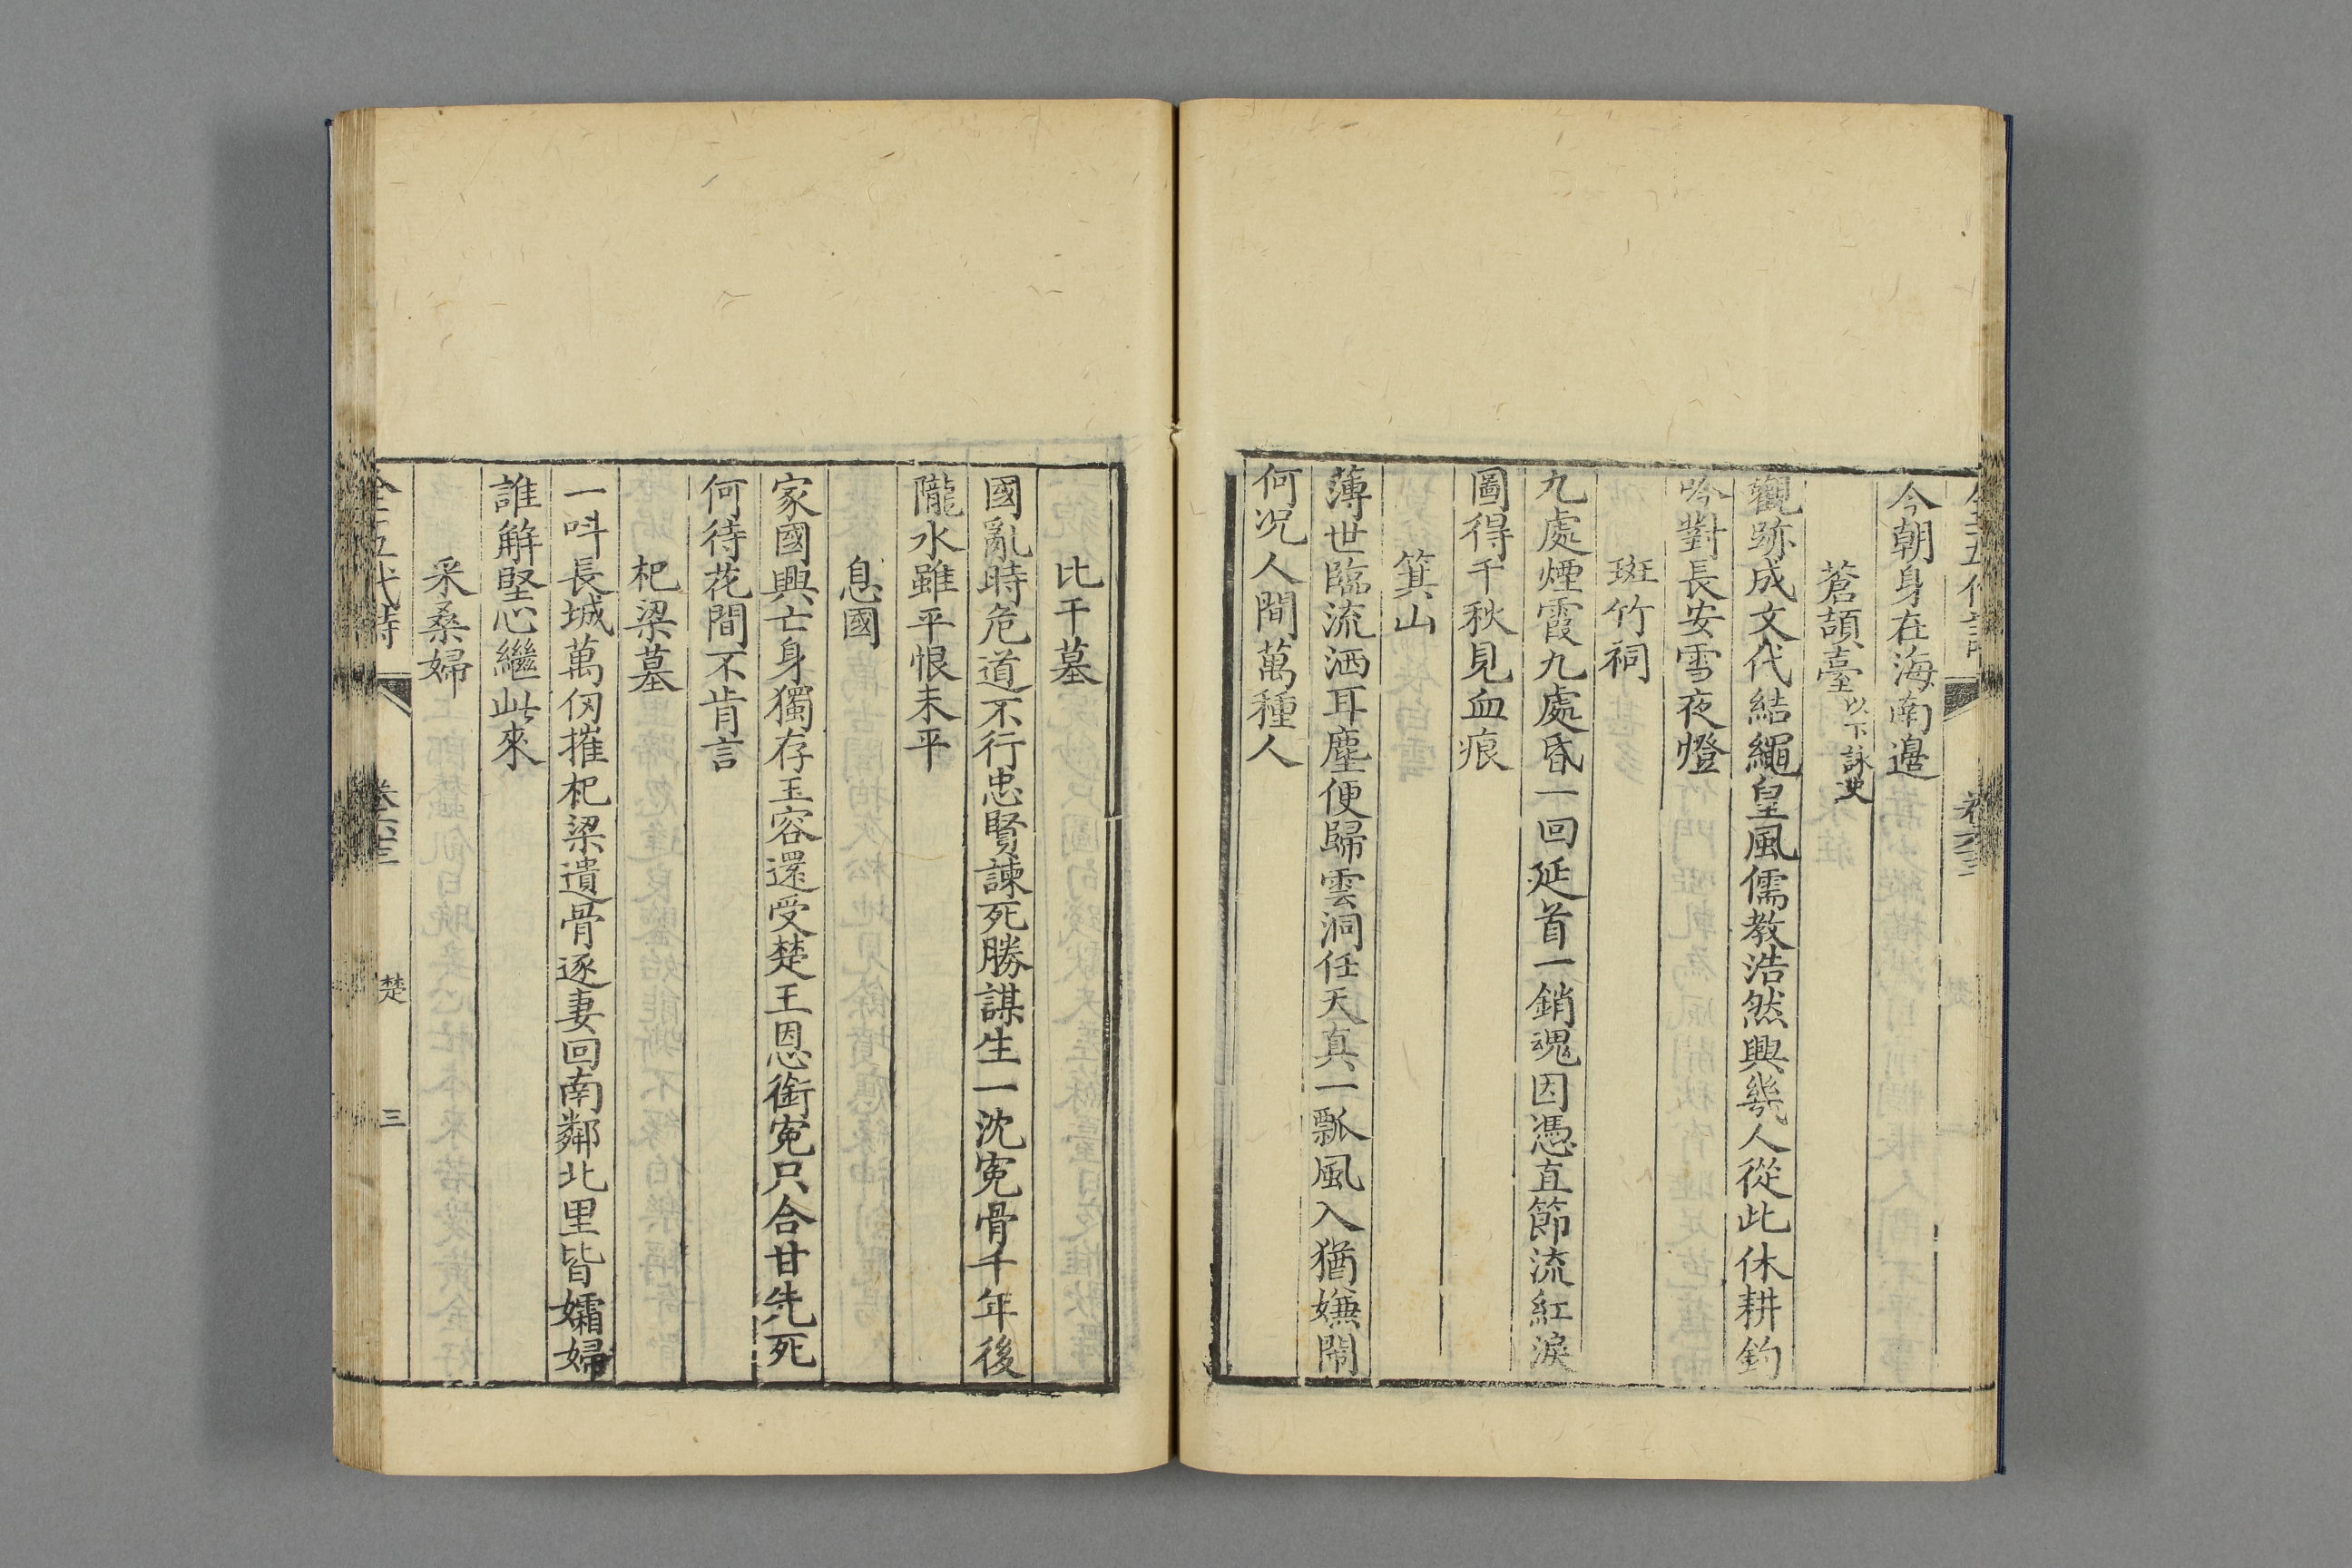 全五代詩 卷六十三
今朝身在海南邊
蒼頡臺以下詠史
觀跡成文代結繩皇風儒教浩然興幾人從此休耕釣
吟對長安雪夜燈
斑竹祠
九處煙霞九處昏一回延首一銷魂因憑直節流紅淚
圖得千秋見血痕
箕山
薄世臨流洒耳塵便歸雲洞任天真一瓢風入猶嫌鬧
何况人間萬種人
比干墓
國亂時危道不行忠賢諫死勝謀生一沈寃骨千年後
隴水雖平恨未平
息國
家國興亡身獨存玉容還受楚王恩銜寃只合甘先死
何待花間不肯言
杞梁墓
一呌長城萬仞摧杞梁遺骨逐妻回南鄰北里皆孀婦
誰解堅心繼此來
采桑婦
全五代詩 卷六十三 楚 三